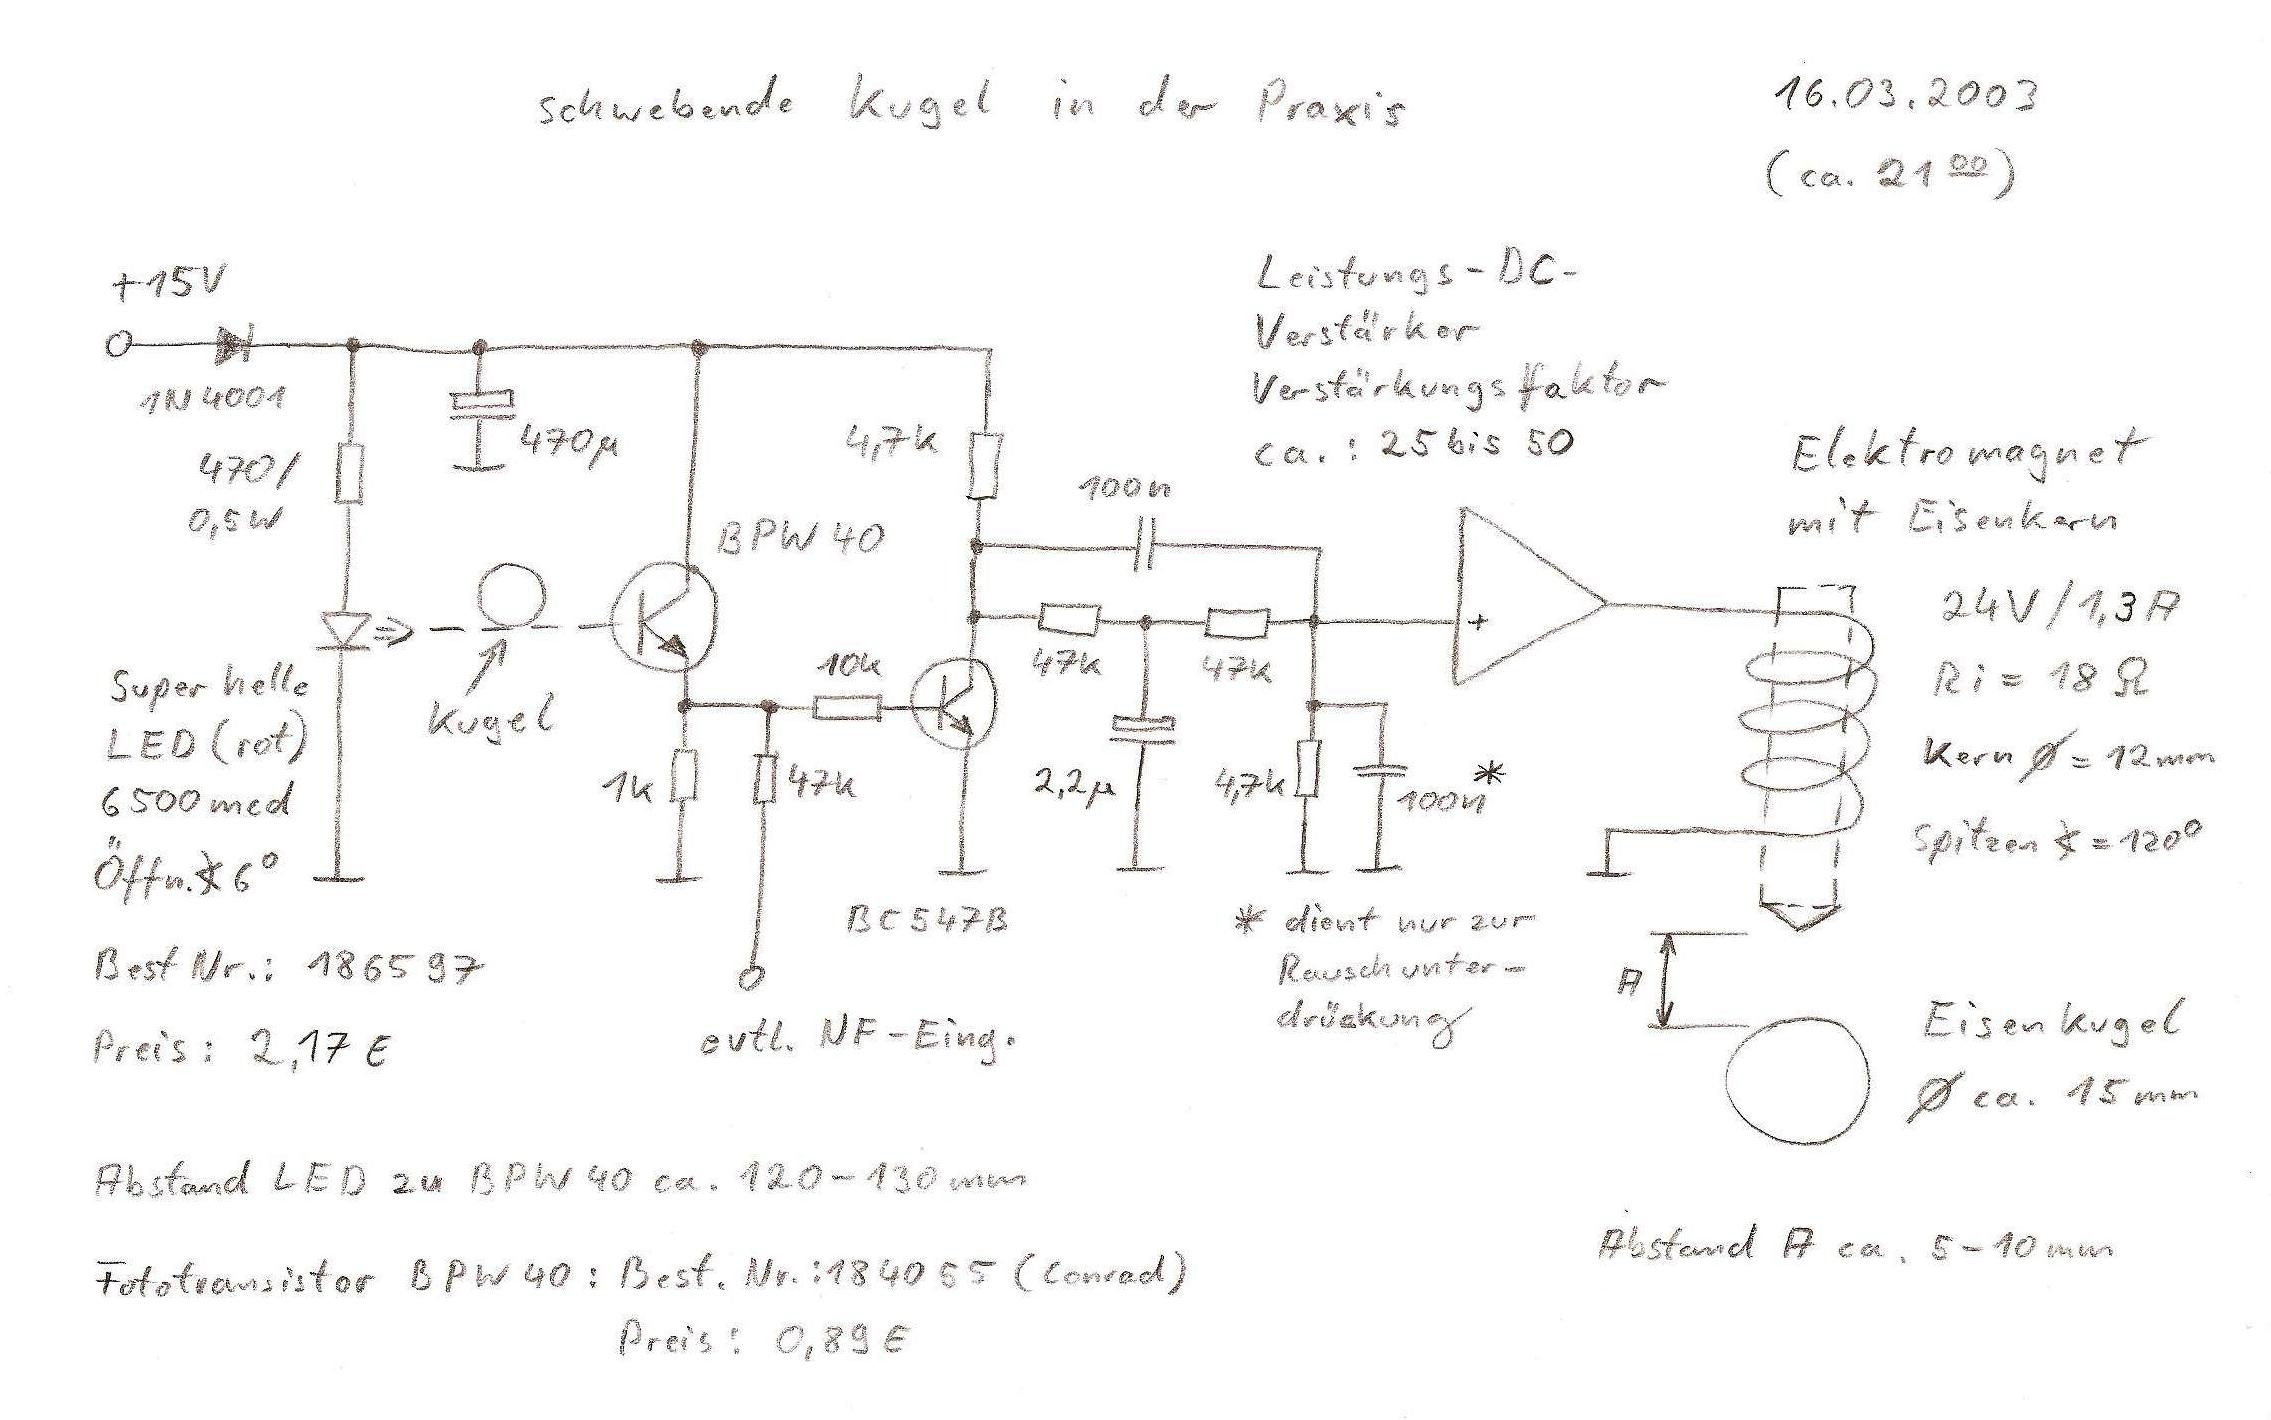 schwebende Kugel in der Praxis
16.03.2003
(ca. 21 00)
+15V
1N4001
470/
0,5W
470µ
4,7k
BPW 40
100n
Leistungs-DC-
Verstärker
Verstärkungsfaktor
ca.: 25 bis 50
Elektromagnet
mit Eisenkern
24V/1,3A
Ri = 18 Ω
Kern Ø = 12mm
Spitzen ∢ = 120°
Super helle
LED (rot)
6500 mcd
Öffn. ∢ 6°
Best Nr.: 186597
Preis: 2,17 €
Kugel
10k
1k
47k
evtl. NF-Eing.
BC 547B
47k
47k
2,2µ
4,7k
100n*
+
* dient nur zur
Rauschunter-
drückung
A
Eisenkugel
Ø ca. 15mm
Abstand LED zu BPW 40 ca. 120-130mm
Abstand A ca. 5-10mm
Fototransistor BPW 40: Best. Nr.: 184055 (Conrad)
Preis: 0,89 €